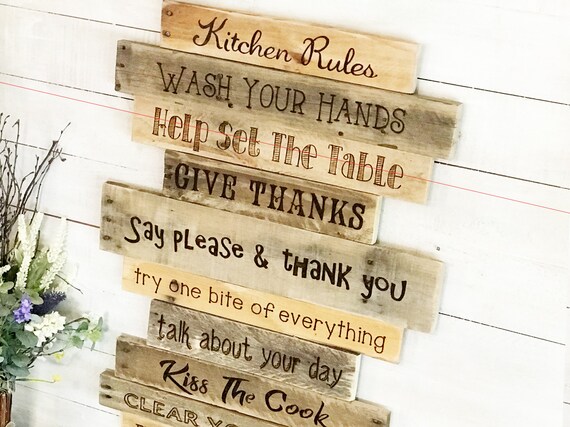 Kitchen Rules
WASH YOUR HANDS
Help Set The Table
GIVE THANKS
Say PLEASE & tHANK YOU
try one bite of everything
talk about your day
Kiss The Cook
CLEAR